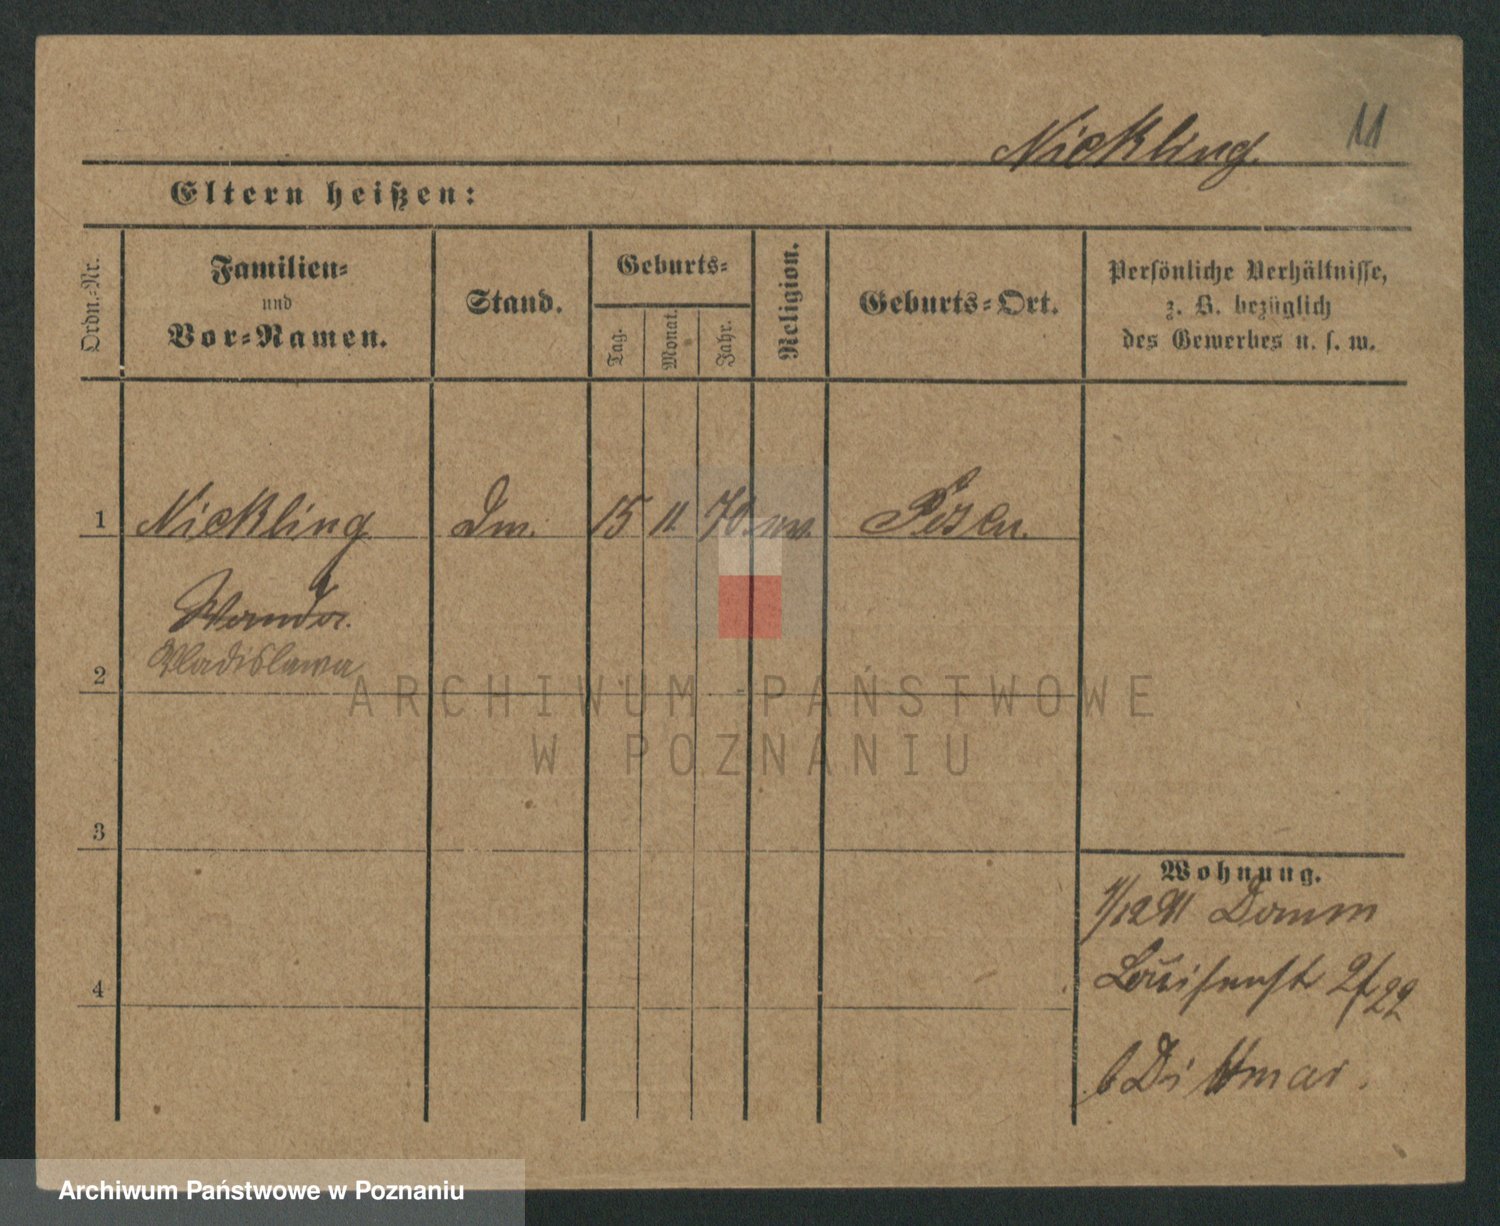 Nickling. 11
Eltern heißen:
Ordn.-Nr.
Familien-
und
Vor-Namen.
Stand.
Geburts-
Tag.
Monat.
Jahr.
Religion.
Geburts-Ort.
Persönliche Verhältnisse,
z. B. bezüglich
des Gewerbes u. s. w.
1 Nickling Dm. 15 11. 70. Posen.
Wanda.
2 Wladislawa
3
4
Wohnung.
Damm
Louisenstr
b Dittmar.
ARCHIWUM PAŃSTWOWE
W POZNANIU
Archiwum Państwowe w Poznaniu